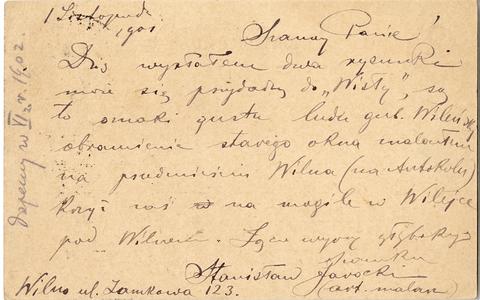 1 Listopada
1901
Szanowny Panie!
Dziś wysłałem dwa rysunki
może się przydadzą do „Wisły”, są
to oznaki gustu ludu gub. Wileńskiej
obramienie starego okna malowałem
na przedmieściu Wilna (na Antokolu)
krzyż zaś na mogile w Wilejce
pod Wilnem. Łączę wyrazy głębokiego
szacunku
Stanisław Jarocki
(art. malarz)
Wilno ul. Zamkowa 123.
w VI z r. 1902.